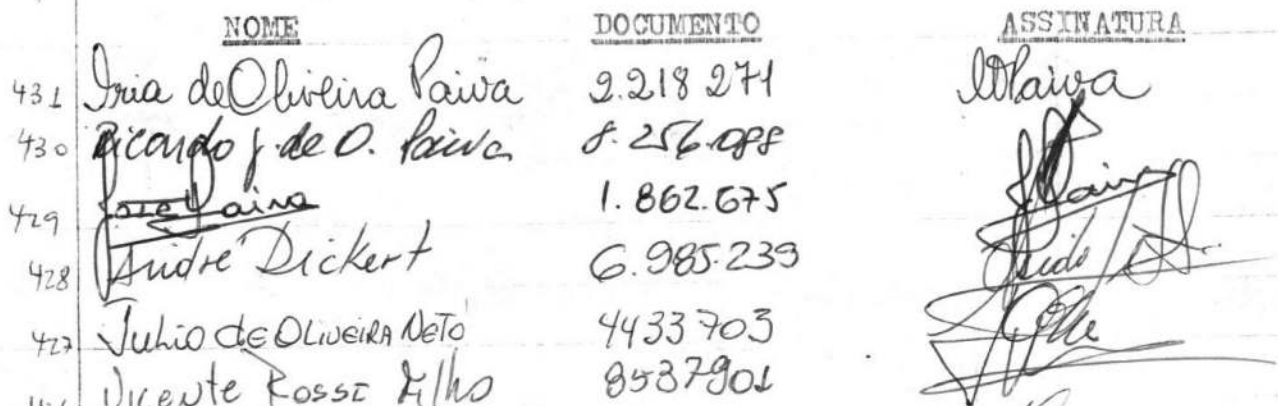 NOME DOCUMENTO ASSINATURA
431 Iria de Oliveira Paiva 2.218 271 IOPaiva
430 Ricardo J. de O. Paiva 8.256.088
429 José Paiva 1.862.675 JPaiva
428 André Dickert 6.985.239
427 Julio de OLIVEIRA NETO 4433703
Vicente Rossi Filho 8537901